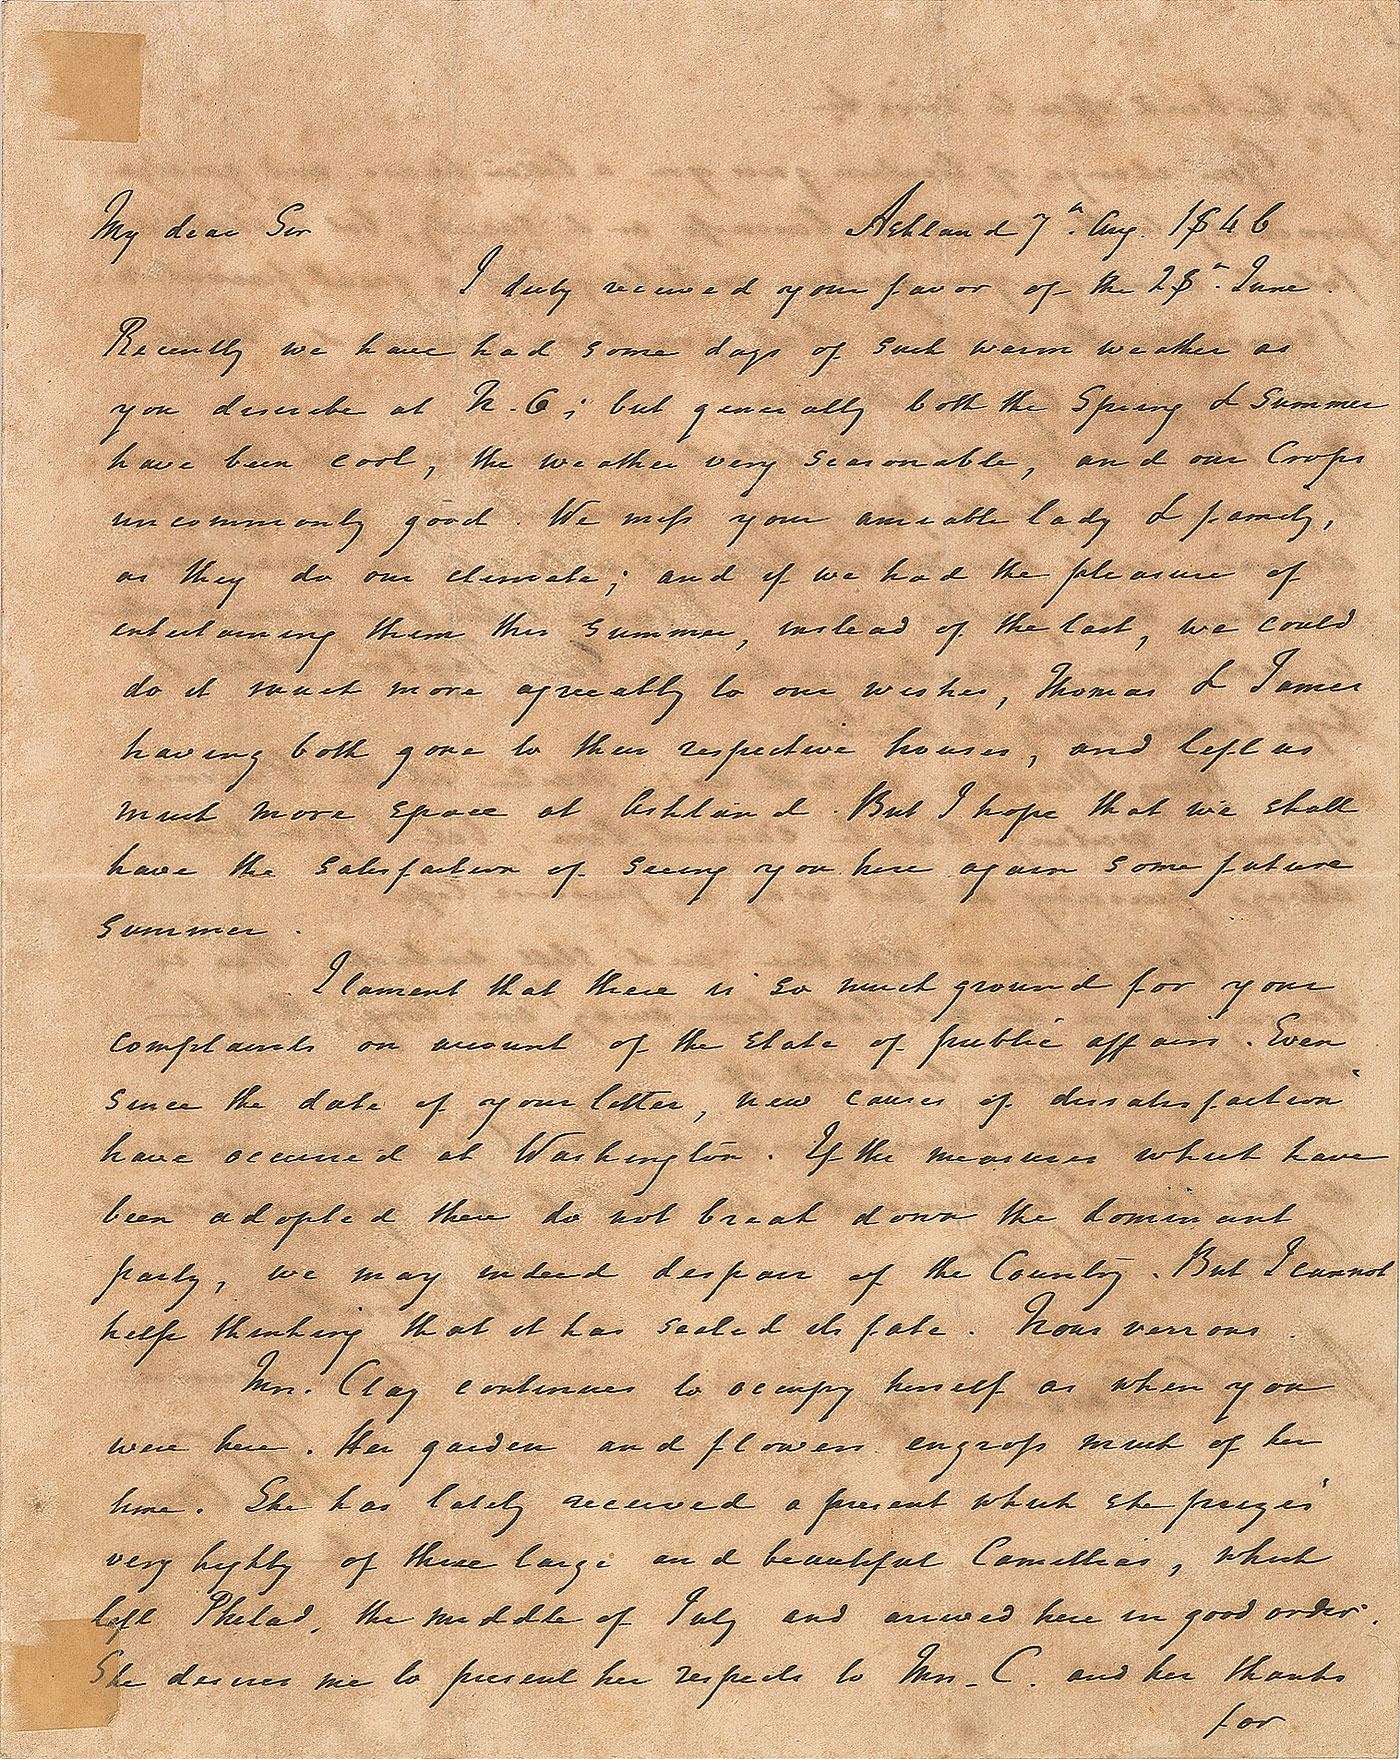 My dear Sir
Ashland 7th. Aug. 1846
I duly received your favor of the 28th. June.
Recently we have had some days of such warm weather as
you describe at N. O; but generally both the Spring & Summer
have been cool, the weather very seasonable, and our Crops
uncommonly good. We miss your amiable lady & family,
as they do our climate; and if we had the pleasure of
entertaining them this summer, instead of the last, we could
do it much more agreeably to our wishes, Thomas & James
having both gone to their respective houses, and left us
much more space at Ashland. But I hope that we shall
have the satisfaction of seeing you here again some future
summer.
I lament that there is so much ground for your
complaints on account of the state of public affairs. Even
since the date of your letter, new causes of dissatisfaction
have occurred at Washington. If the measures which have
been adopted there do not break down the dominant
party, we may indeed despair of the Country. But I cannot
help thinking that it has sealed its fate. Nous verrons.
Mrs. Clay continues to occupy herself as when you
were here. Her garden and flowers engross much of her
time. She has lately received a present which she prizes
very highly of three large and beautiful Camellias, which
left Philad. the middle of July and arrived here in good order.
She desires me to present her respects to Mrs. C. and her thanks
for